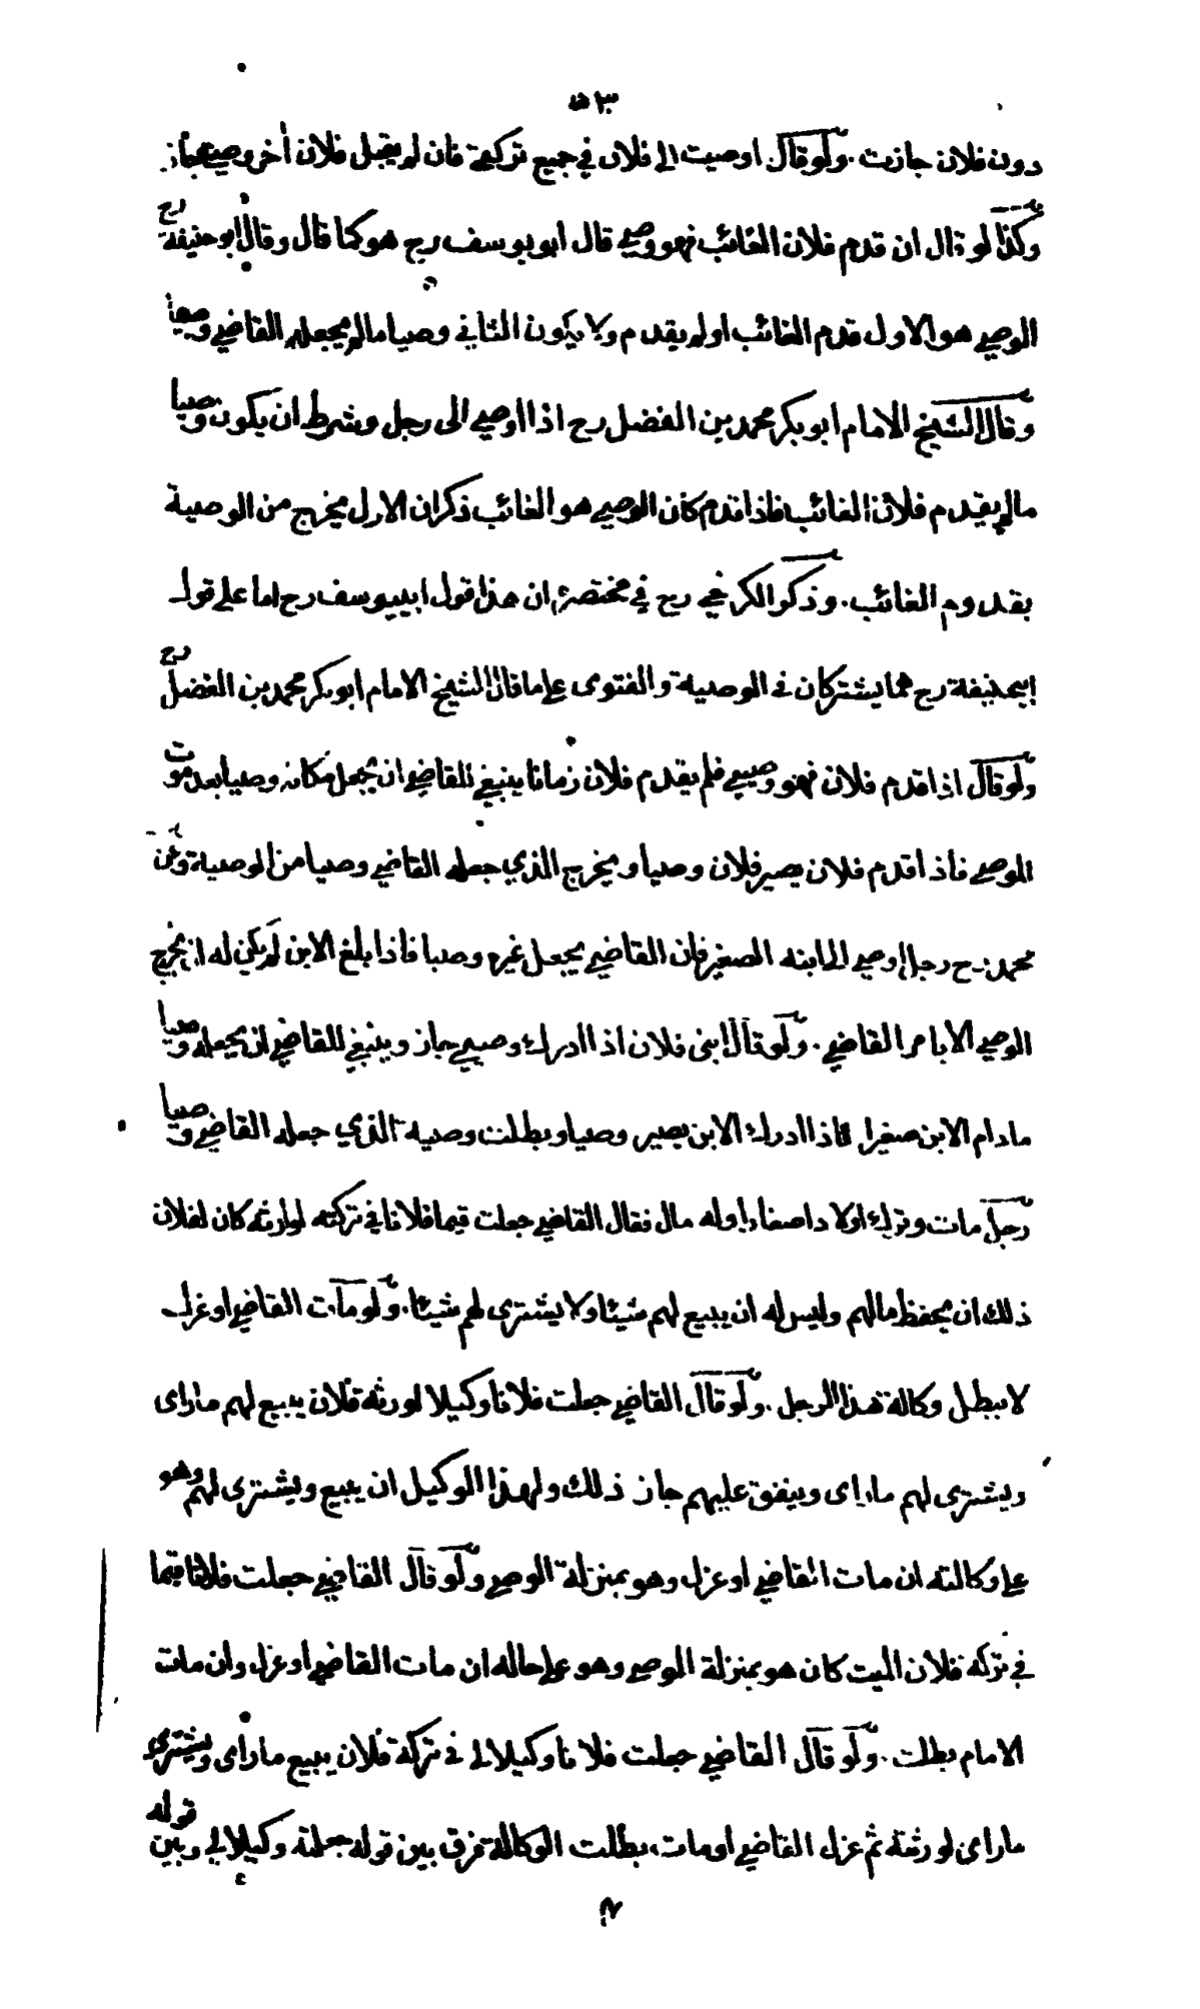 ٥٣
دون فلان جازت . ولو قال اوصيت الى فلان في جميع تركتي فان لم يقبل فلان آخر وصيي جاز .
وكذا لو قال ان قدم فلان الغائب فهو وصيي قال ابو يوسف رح هو كما قال وقال ابو حنيفة رح
الوصي هو الاول قدم الغائب او لم يقدم ولا يكون الثاني وصيا مالم يجعله القاضي وصيا
وقال الشيخ الامام ابو بكر محمد بن الفضل رح اذا اوصي الى رجل وشرط ان يكون وصيا
مالم يقدم فلان الغائب فاذا قدم كان الوصي هو الغائب ذكر ان الاول يخرج من الوصية
بقدوم الغائب . وذكر الكرخي رح في مختصره ان هذا قول ابي يوسف رح اما على قول
ابي حنيفة رح هما يشتركان في الوصية والفتوى على ما قال الشيخ الامام ابو بكر محمد بن الفضل رح
ولو قال اذا قدم فلان فهو وصيي فلم يقدم فلان زمانا ينبغي للقاضي ان يجعل مكانه وصيا بعد موت
الموصي فاذا قدم فلان يصير فلان وصيا ويخرج الذي جعله القاضي وصيا من الوصية وعن
محمد رح رجل اوصي الى ابنه الصغير فان القاضي يجعل غيره وصيا فاذا بلغ الابن لم يكن له ان يخرج
الوصي الا بامر القاضي . ولو قال ابني فلان اذا ادرك وصيي جاز وينبغي للقاضي ان يجعله وصيا
مادام الابن صغيرا فاذا ادرك الابن يصير وصيا وبطلت وصية الذي جعله القاضي وصيا
رجل مات وترك اولادا صغارا وله مال فقال القاضي جعلت قيما فلانا في تركته لوارثه كان لفلان
ذلك ان يحفظ مالهم وليس له ان يبيع لهم شيئا ولا يشترى لهم شيئا . ولو مات القاضي او عزل
لا يبطل وكالة هذا الرجل . ولو قال القاضي جعلت فلانا وكيلا لورثة فلان يبيع لهم ما راى
ويشترى لهم ما راى وينفق عليهم جاز ذلك ولهذا الوكيل ان يبيع ويشترى لهم وهو
على وكالته ان مات القاضي او عزل وهو بمنزلة الوصي ولو قال القاضي جعلت فلانا قيما
في تركة فلان الميت كان هو بمنزلة الموصي وهو على حاله ان مات القاضي او عزل وان مات
الامام بطلت . ولو قال القاضي جعلت فلانا وكيلا لي في تركة فلان يبيع ما راى ويشترى
ما راى لورثته ثم عزل القاضي او مات بطلت الوكالة فرق بين قوله جعلته وكيلا لي وبين قوله